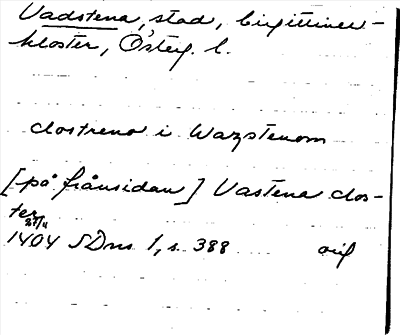 Vadstena, stad, birgittiner-
kloster, Österg. l.
clostreno i Wazstenom
[på frånsidan] Vastena clos-
ter
27/11
1404 SDns 1, s. 388 oif